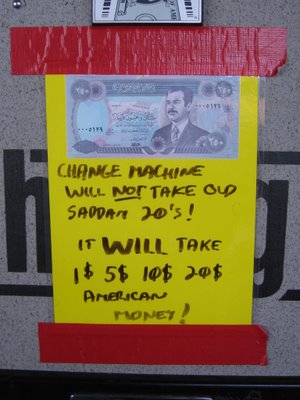 ٢٥٠ ٢٥٠
٠٠٠٥١٢٩ ٠٠٠٥١٢٩
CHANGE MACHINE
WILL NOT TAKE OLD
SADDAM 20's!
IT WILL TAKE
1$ 5$ 10$ 20$
AMERICAN
MONEY!